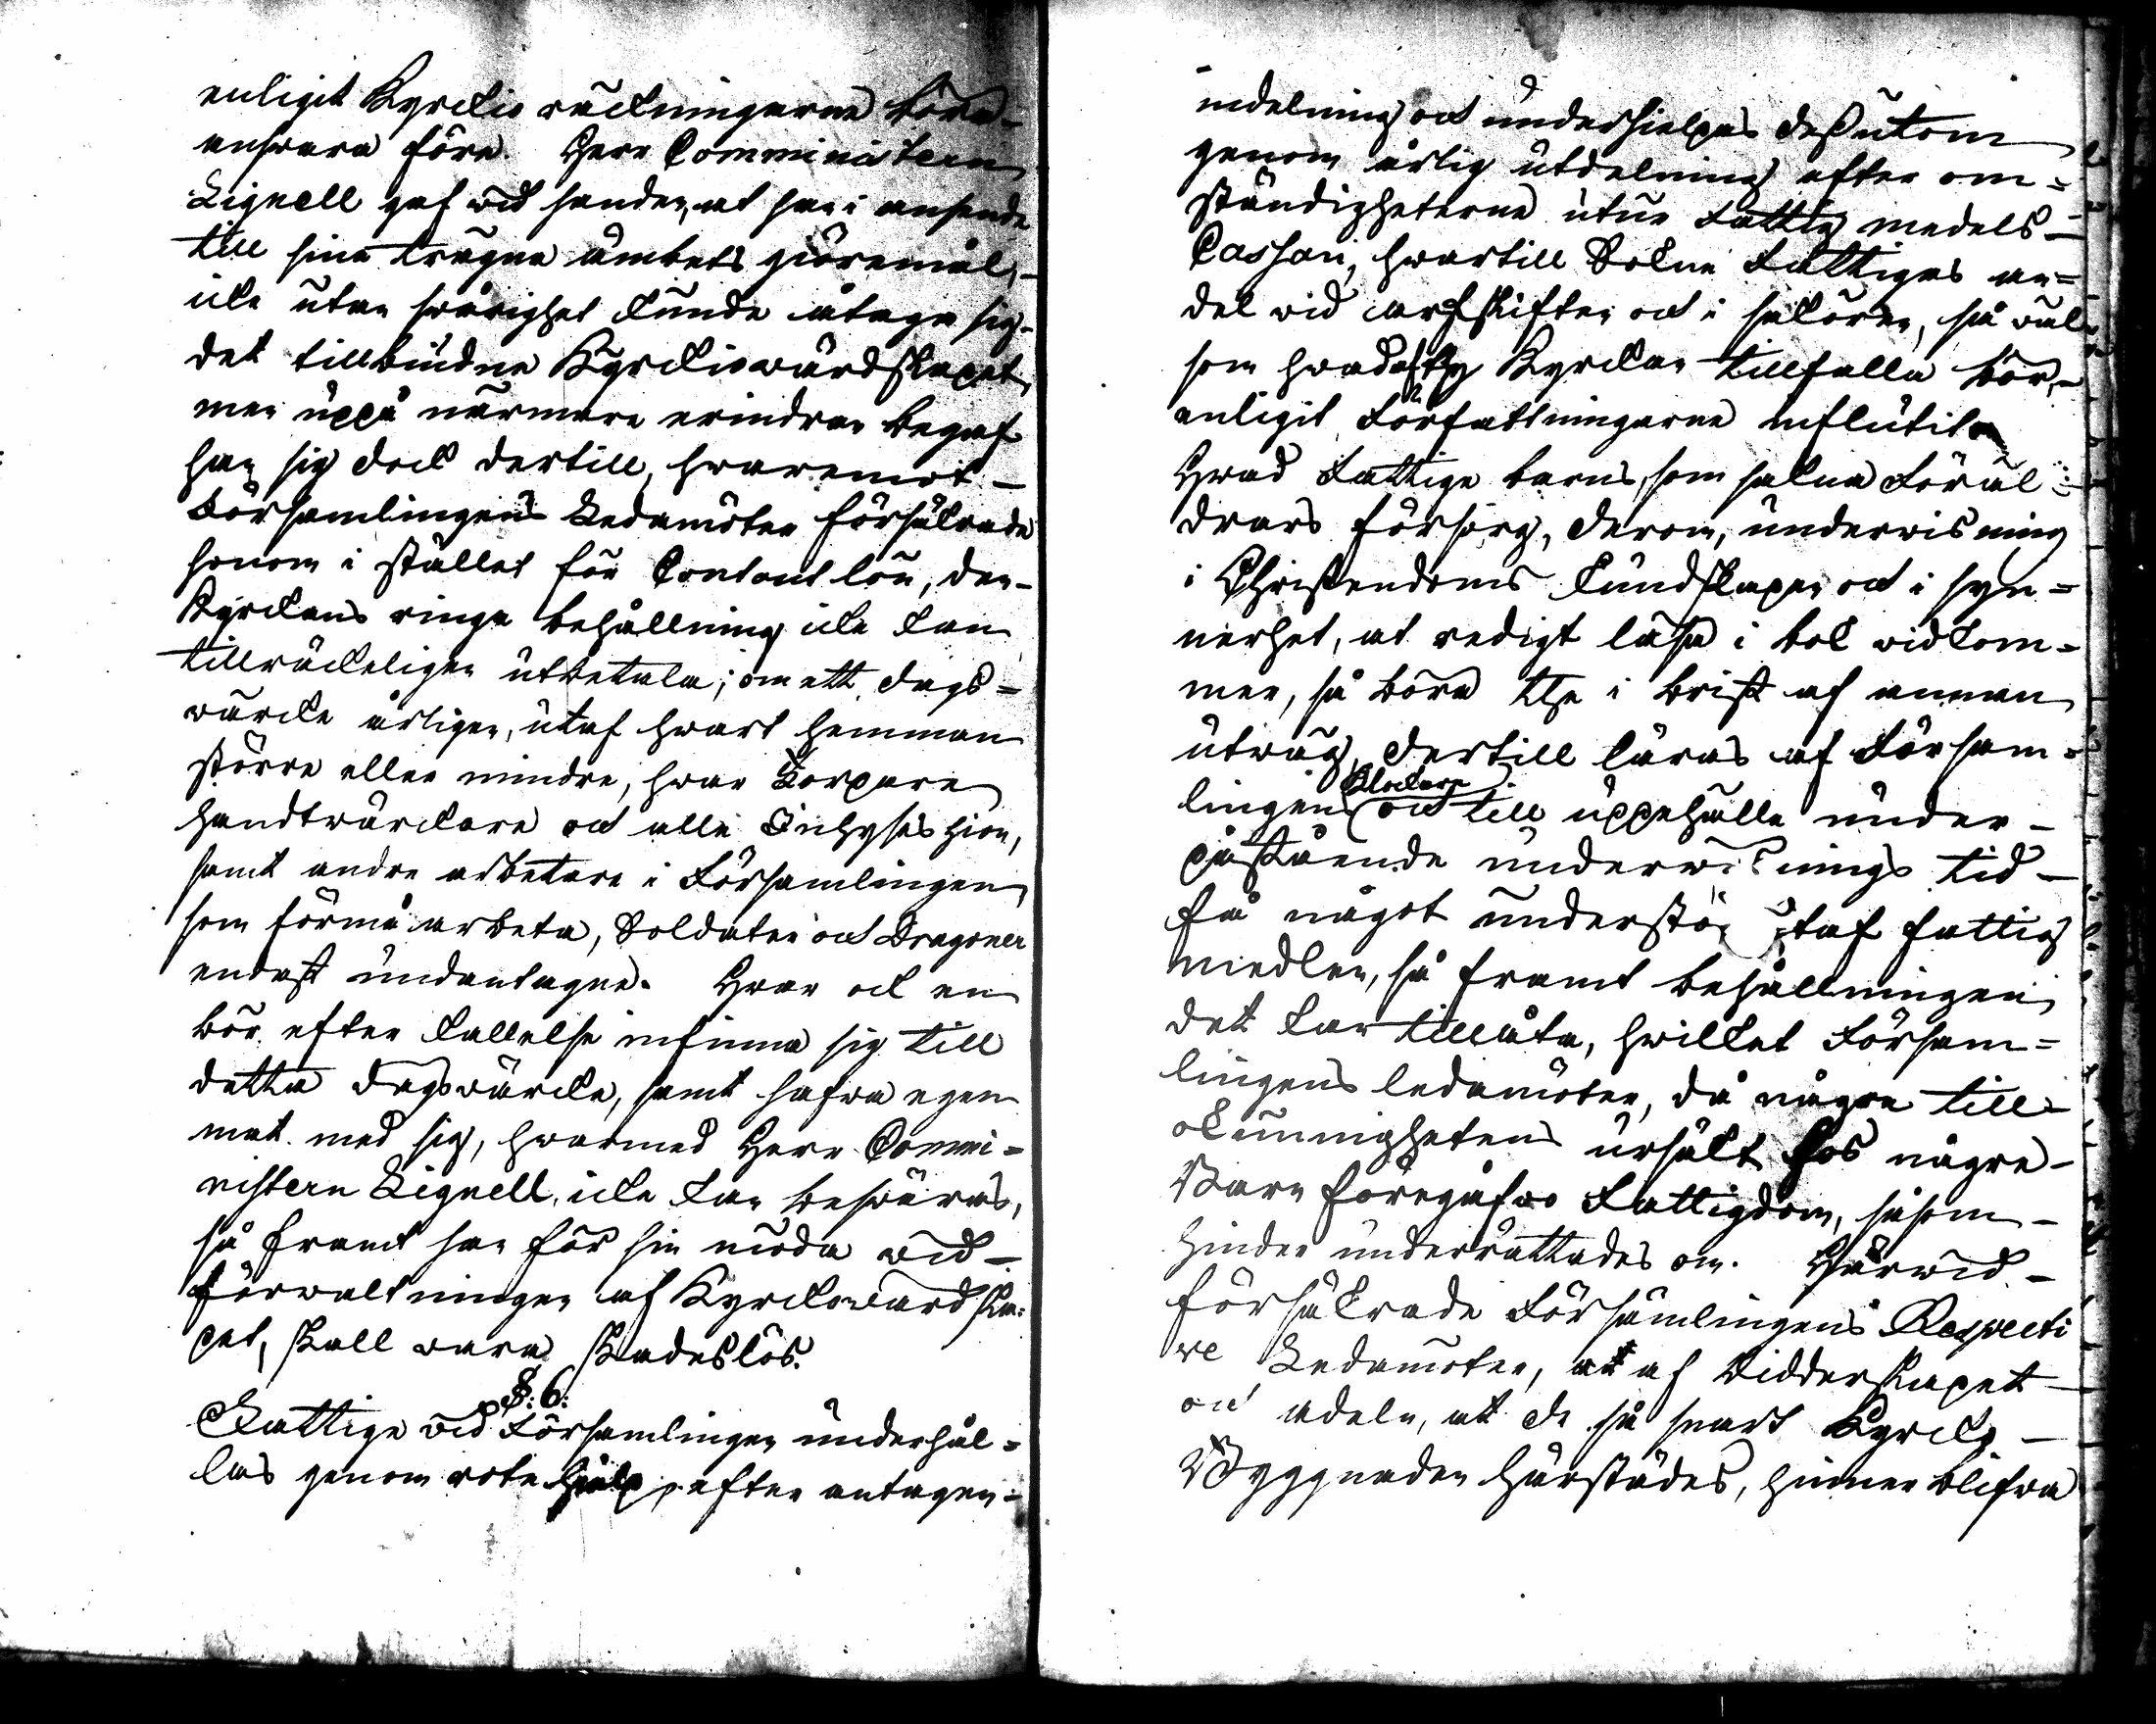 enligit Kyrckio räckningarne böra
answara före. Herr Comministern
Lignell gaf wid handen, at han i anseende
till sine trägne ämbets giöremål,
icke utan swårighet kunde åtaga sig
det tillbudne Kyrckiowärdskapet,
men uppå närmare erindran begaf
han sig dock dertill, hwaremot
Församlingens Ledamöter försäkrade
honom i stället för Contant lön, den
Kyrckans ringa behållning icke kan
tillräckeligen utbetala; om ett dags=
wärcke årligen, utaf hwart hemman
större eller mindre, hwar Torpare
handtwärckare och alle Inhyses hion,
samt andre arbetare i Församlingen,
som förmå arbeta, Soldater och Dragoner
endast undantagne. Hwar och en
bör efter kallelse infinna sig till
detta dagswärcke, samt hafwa egen
mat med sig, hwarmed Herr Commi=
nistern Lignell icke kan beswäras,
så framt han för sin möda wid
förwaltningen af Kyrckowärdska=
pet, skall wara skadeslös.
§: 6:
Fattige wid Församlingen underhål=
las genom rote hielp efter antagen
indelning och underhielpas dessutom
genom årlig utdelning efter om=
ständigheterne utur Fattig medels
Cassan, hwartill Sokne Fattigas an=
del wid arfskiften och i saköron, så wäl
som hwad Kyrckan tillfalla bör,
enligit Författningarne influtit
Hwad Fattige barn, som sakna Föräl=
drars försorg, derom, underwisning
i Christendoms kundskapen och i syn=
nerhet, at redigt läsa i bok widkom=
mer, så böra the i brist af annan
utwäg, dertill läras af Försam=
Klockare
lingens och till uppehälle under
påstående underwisnings tid
få något understöd utaf fattig
medlen, så framt behållningen
det kan tillåta, hwilket Försam=
lingens ledamöter, då några till
okunnighetens ursäkt hos några
Barn föregåfwo Fattigdom, såsom
hinder underrättades om. Härwid
försäkrade Församlingens Respecti
ve Ledamöter, at af Ridderskapet
och adeln, at de så snart Kyrcko
Byggnaden härstädes, hinner blifwa